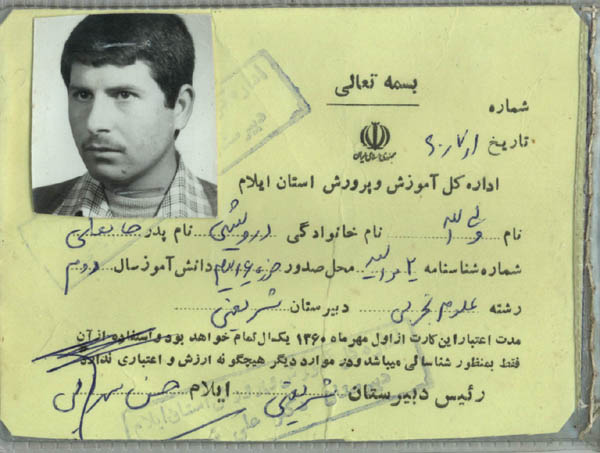 بسمه تعالی
شماره
تاریخ
جمهوری اسلامی ایران
اداره کل آموزش و پرورش استان ایلام
نام ولی الله نام خانوادگی درویشی نام پدر
شماره شناسنامه ۲ محل صدور دانش آموز سال دوم
رشته علوم تجربی دبیرستان شریعتی
مدت اعتبار این کارت از اول مهر ماه ۱۳۶۰ یک ال تمام خواهد بود و استفاده از آن
فقط بمنظور شناسائی میباشد و در موارد دیگر هیچگونه ارزش و اعتباری ندارد
رئیس دبیرستان شریعتی ایلام حسن